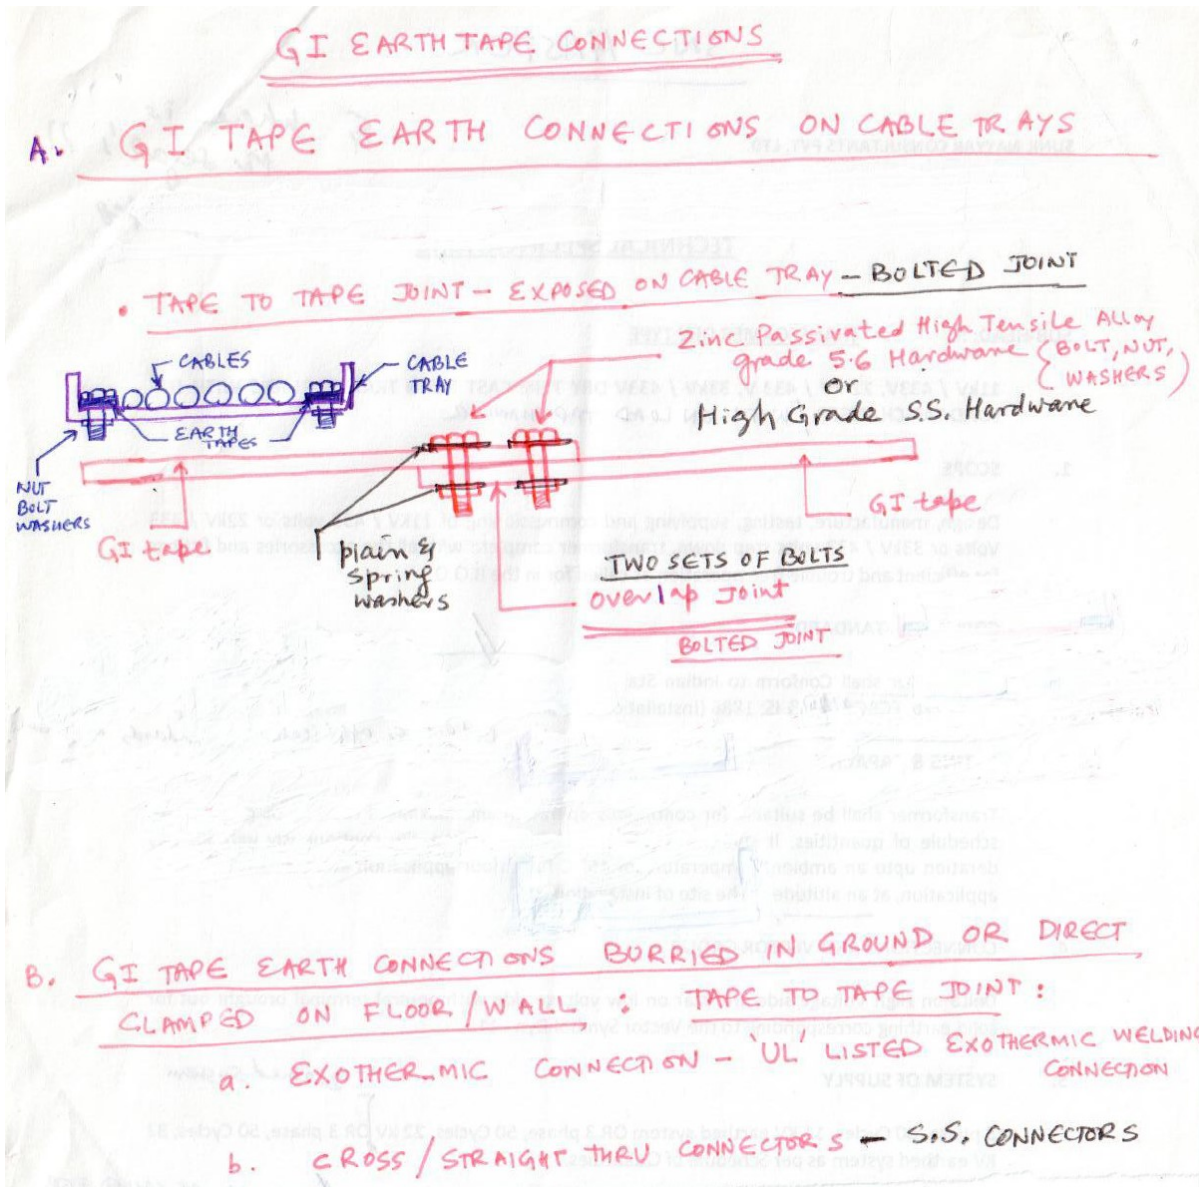 GI EARTH TAPE CONNECTIONS
A. GI TAPE EARTH CONNECTIONS ON CABLE TRAYS
• TAPE TO TAPE JOINT - EXPOSED ON CABLE TRAY - BOLTED JOINT
Zinc Passivated High Tensile Alloy
grade 5.6 Hardware (BOLT, NUT,
WASHERS)
Or
High Grade S.S. Hardware
CABLES
CABLE
TRAY
EARTH
TAPES
NUT
BOLT
WASHERS
GI tape
plain &
spring
washers
GI tape
TWO SETS OF BOLTS
overlap Joint
BOLTED JOINT
B. GI TAPE EARTH CONNECTIONS BURRIED IN GROUND OR DIRECT
CLAMPED ON FLOOR/WALL : TAPE TO TAPE JOINT :
a. EXOTHERMIC CONNECTION - 'UL' LISTED EXOTHERMIC WELDING
CONNECTION
b. CROSS/STRAIGHT THRU CONNECTORS - S.S. CONNECTORS